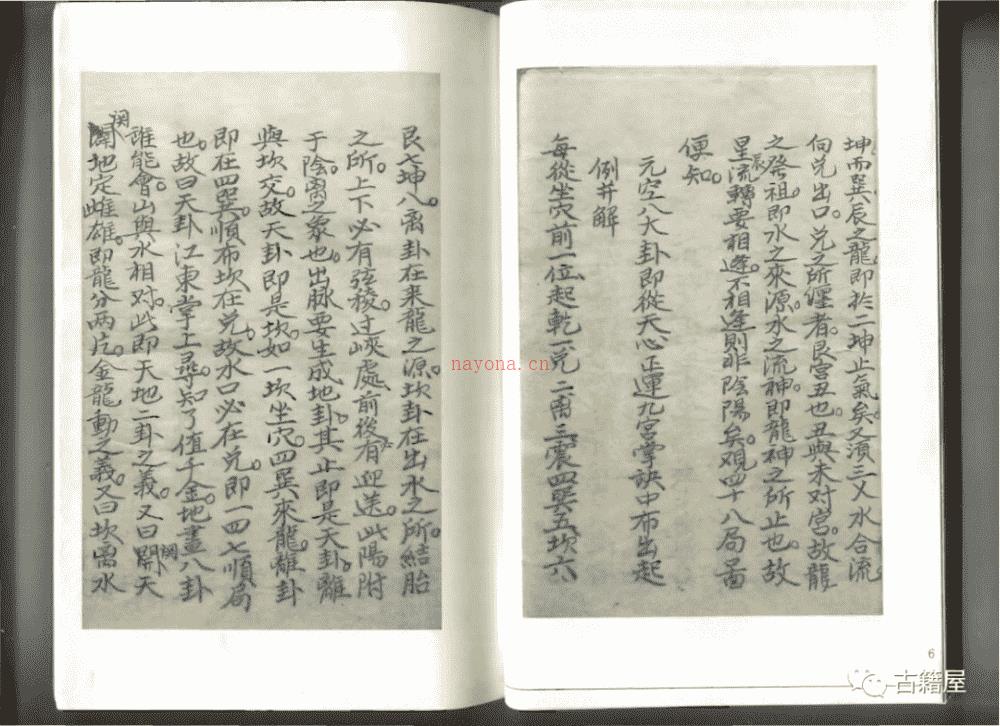 坤而巽辰之龍即於二坤止氣矣又須三乂水合流
向兌出口兌之所躔者艮宮丑也丑與未对宮故龍
之發祖即水之來源水之流神即龍神之所止也故
星辰流轉要相逢不相逢則非陰陽矣观四十八局啚
便知
元空八大卦即從天心正運九宮掌訣中布出起
例并解
每從坐穴前一位起乾一兌二离三震四巽五坎六
艮七坤八离卦在来龍之源坎卦在出水之所結胎
之所上下必有弦稜过峽處前後有迎送此陽附
于陰离之象也出脉要生成地卦其止即是天卦離
與坎交故天卦即是坎如一坎坐穴四巽來龍離卦
即在四巽順布坎在兌故水口必在兌即一四七順局
也故曰天卦江東掌上尋知了值千金地畫八卦
誰能會山與水相对此即天地二卦之義又曰関天
関地定雌雄即龍分兩片金龍動之義又曰坎离水
6
nayona.cn
古籍屋